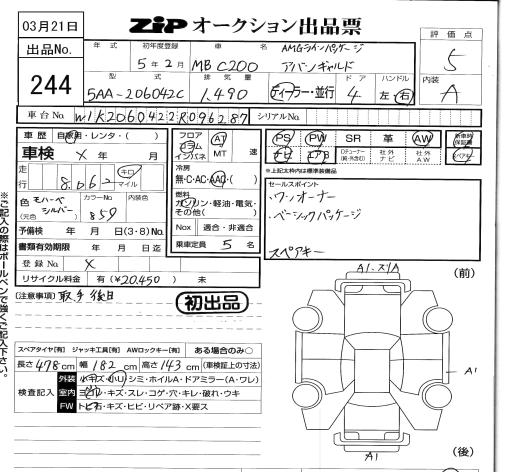 03月21日
ZIP オークション出品票
評価点
5
出品No.
244
年式 初年度登録 車名
5年2月 MB C200 AMGラインパッケージ アバンギャルド
型式 排気量 ドア ハンドル
5AA-206042C 1,490 ディーラー・並行 4 左・右
内装
A
車台No. W1K2060422R096287 シリアルNo.
車歴 自家用・レンタ・( )
車検 X 年 月
走行 8,062 キロ マイル
色 モハーベシルバー (元色) カラーNo. 859 内装色
予備検 年 月 日(3・8)No.
書類有効期限 年 月 日迄
登録No. X
リサイクル料金 有(¥20,450) 未
フロア コラム インパネ AT MT 速
冷房
無・C・AC・AAC・( )
燃料
ガソリン・軽油・電気・その他( )
Nox 適合・非適合
乗車定員 5 名
PS PW SR 革 AW 新車時保証書
ナビ エアB 社外ナビ 社外A.W スペアキー
※上記太枠内は標準装備品
セールスポイント
・ワンオーナー
・ベーシックパッケージ
スペアキー
(注意事項) 取予後日
初出品
A1・スリA
(前)
A1
A1
(後)
スペアタイヤ[有] ジャッキ工具[有] AWロックキー[有] ある場合のみ○
長さ 478 cm 幅 182 cm 高さ 143 cm (車検証上の寸法)
検査記入
外装 小キズ・小凹・シミ・ホイルA・ドアミラー(A・ワレ)
室内 ヨゴレ・キズ・スレ・コゲ・穴・キレ・破れ・ウキ
FW トビ石・キズ・ヒビ・リペア跡・X要ス
※ご記入の際はボールペンで強くご記入下さい。